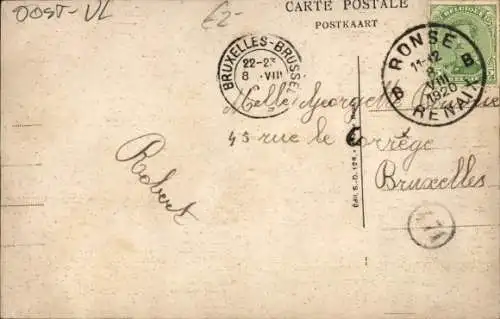 OOST-VL
€2-
CARTE POSTALE
POSTKAART
BRUXELLES-BRUSSEL
22-23
8 VIII
RONSE
11-12
8
VIII
1920
B B
RENAIX
Melle Georgette
45 rue le Corrège
Bruxelles
Robert